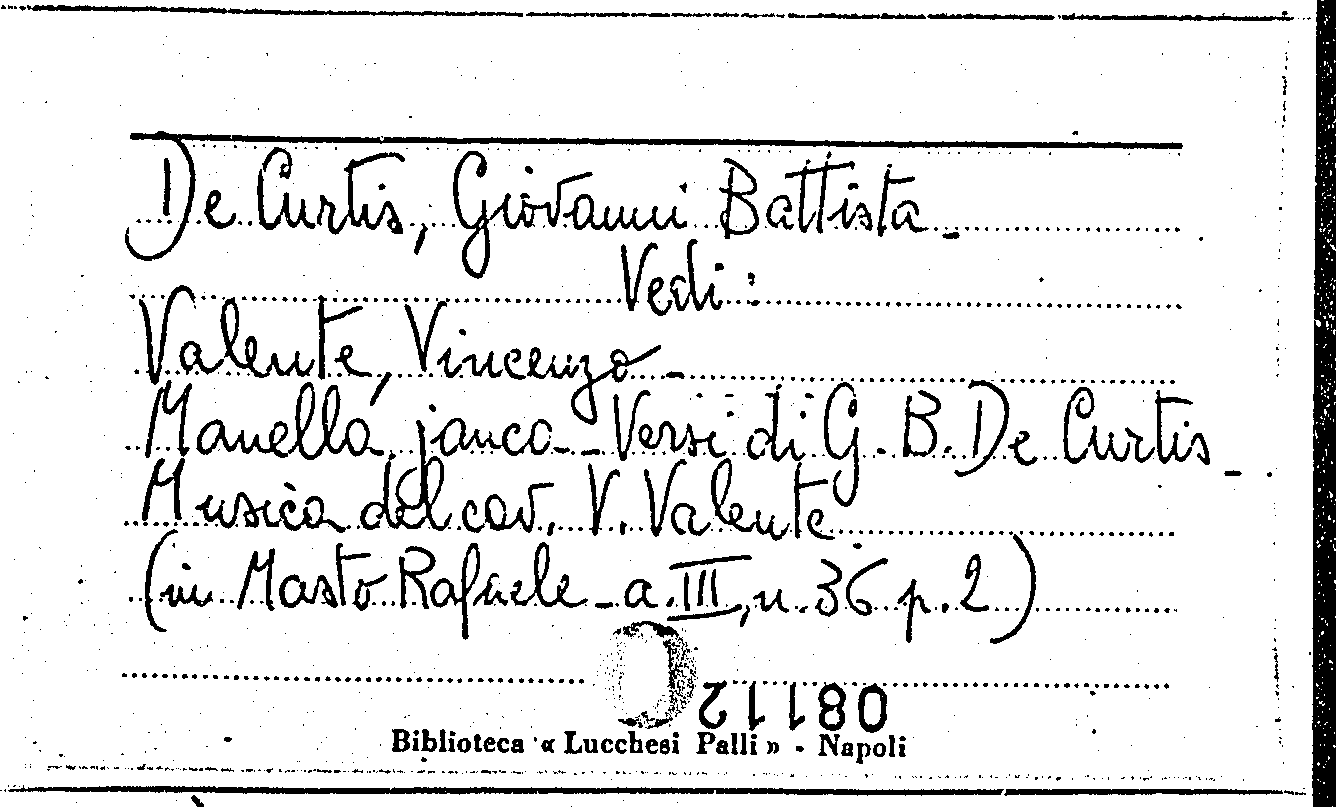 De Curtis, Giovanni Battista -
Vedi:
Valente, Vincenzo -
Manella janca - Versi di G. B. De Curtis -
Musica del cav. V. Valente
(in Masto Rafaele - a. III, n. 36 p. 2)
08112
Biblioteca « Lucchesi Palli » - Napoli